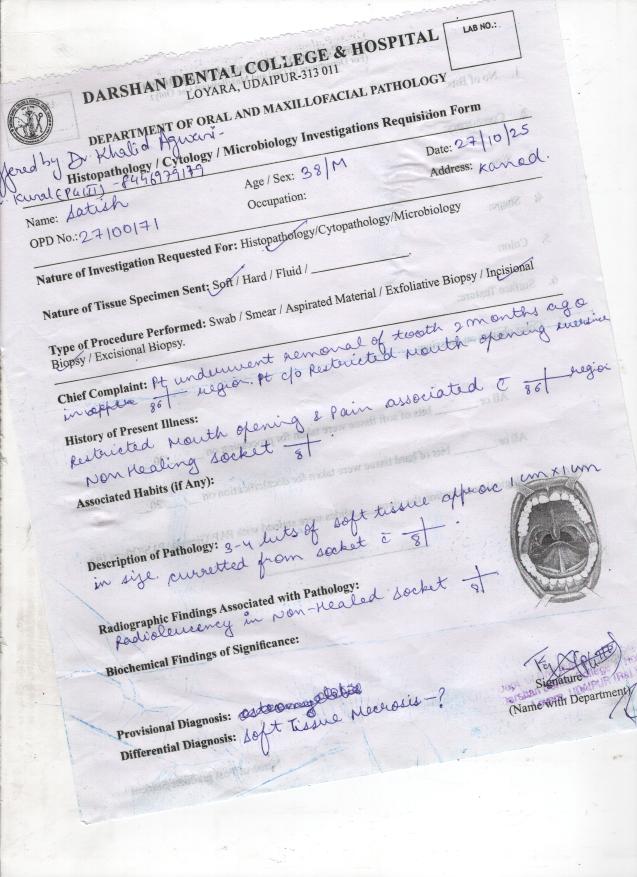 LAB NO.:
DARSHAN DENTAL COLLEGE & HOSPITAL
LOYARA, UDAIPUR-313 011
DEPARTMENT OF ORAL AND MAXILLOFACIAL PATHOLOGY
Histopathology / Cytology / Microbiology Investigations Requisition Form
by Dr. Khalid Agwani-
8446979179
Name: Satish
Age / Sex: 38/M
Date: 27/10/25
OPD No.: 27100171
Occupation:
Address: Kanod.
Nature of Investigation Requested For: Histopathology/Cytopathology/Microbiology
Nature of Tissue Specimen Sent: Soft / Hard / Fluid /
Type of Procedure Performed: Swab / Smear / Aspirated Material / Exfoliative Biopsy / Incisional
Biopsy / Excisional Biopsy.
Chief Complaint: Pt underwent removal of tooth 2 months ago
in 86 region. Pt c/o Restricted Mouth opening
History of Present Illness:
Restricted Mouth opening & Pain associated c̄ 86 region
Non Healing Socket 8
Associated Habits (if Any):
Description of Pathology: 3-4 bits of soft tissue approx 1cm x 1cm
in size curretted from socket c̄ 8
Radiographic Findings Associated with Pathology:
Radiolucency in Non-Healed socket 8
Biochemical Findings of Significance:
Signature
(Name with Department)
Provisional Diagnosis:
Differential Diagnosis: Soft Tissue Necrosis-?